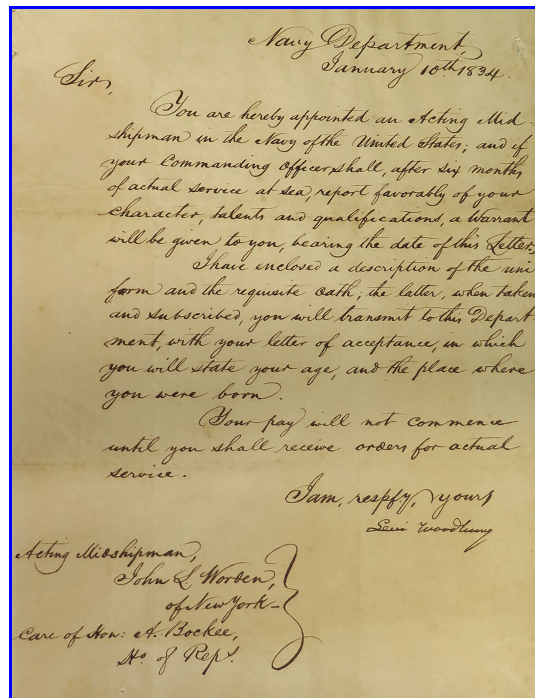 Navy Department,
January 10th 1834.
Sir,
You are hereby appointed an Acting Mid-
shipman in the Navy of the United States; and if
your Commanding Officer shall, after six months
of actual service at sea, report favorably of your
character, talents and qualifications, a warrant
will be given to you, bearing the date of this Letter.
I have enclosed a description of the uni
form and the requisite oath; the latter, when taken
and subscribed, you will transmit to this Depart
ment, with your letter of acceptance, in which
you will state your age, and the place where
you were born.
Your pay will not commence
until you shall receive orders for actual
service.
I am, respfy, yours
Levi Woodbury
Acting Midshipman,
John L. Worden,
of New York-
Care of Hon: A. Bockee,
Ho. of Reps.